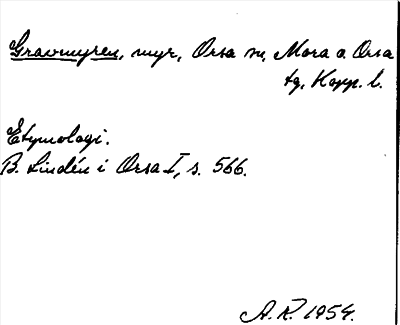 Gravmyren, myr, Orsa sn, Mora o. Orsa
tg, Kopp. l.
Etymologi.
B. Lindén i Orsa I, s. 566.
A. R. 1954.